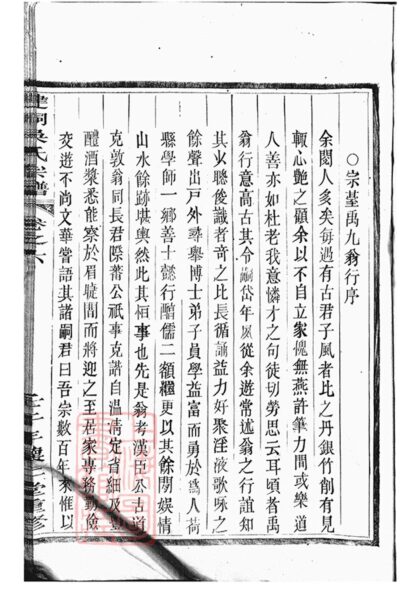 ○宗臺禹九翁行序
余閱人多矣每遇有古君子風者比之丹銀竹劑有見
輒心艷之顧余以不自立家愧無燕許筆力間或樂道
人善亦如杜老我意憐才之句徒切勞思云耳頃者禹
翁行意高古其令嗣岱年夙從余遊常述翁之行誼知
其火聰俊識者奇之比長循誦益力好聚淫液歌咏之
餘聲出戶外尋舉博士弟子員學益富而勇於為人荷
縣學師一鄉善士懿行醇儒二額纚更以其餘閒娛情
山水餘跡堪輿然此其恒事也先是翁考漢臣公古道
克敦翁同長君際蕃公祇事克諧自溫清定省細及
醴酒漿悉能察於眉睫間而將迎之至居家專務勤儉
交遊不尚文華嘗語其諸嗣君曰吾宗數百年來惟以
吳氏宗譜
卷之六